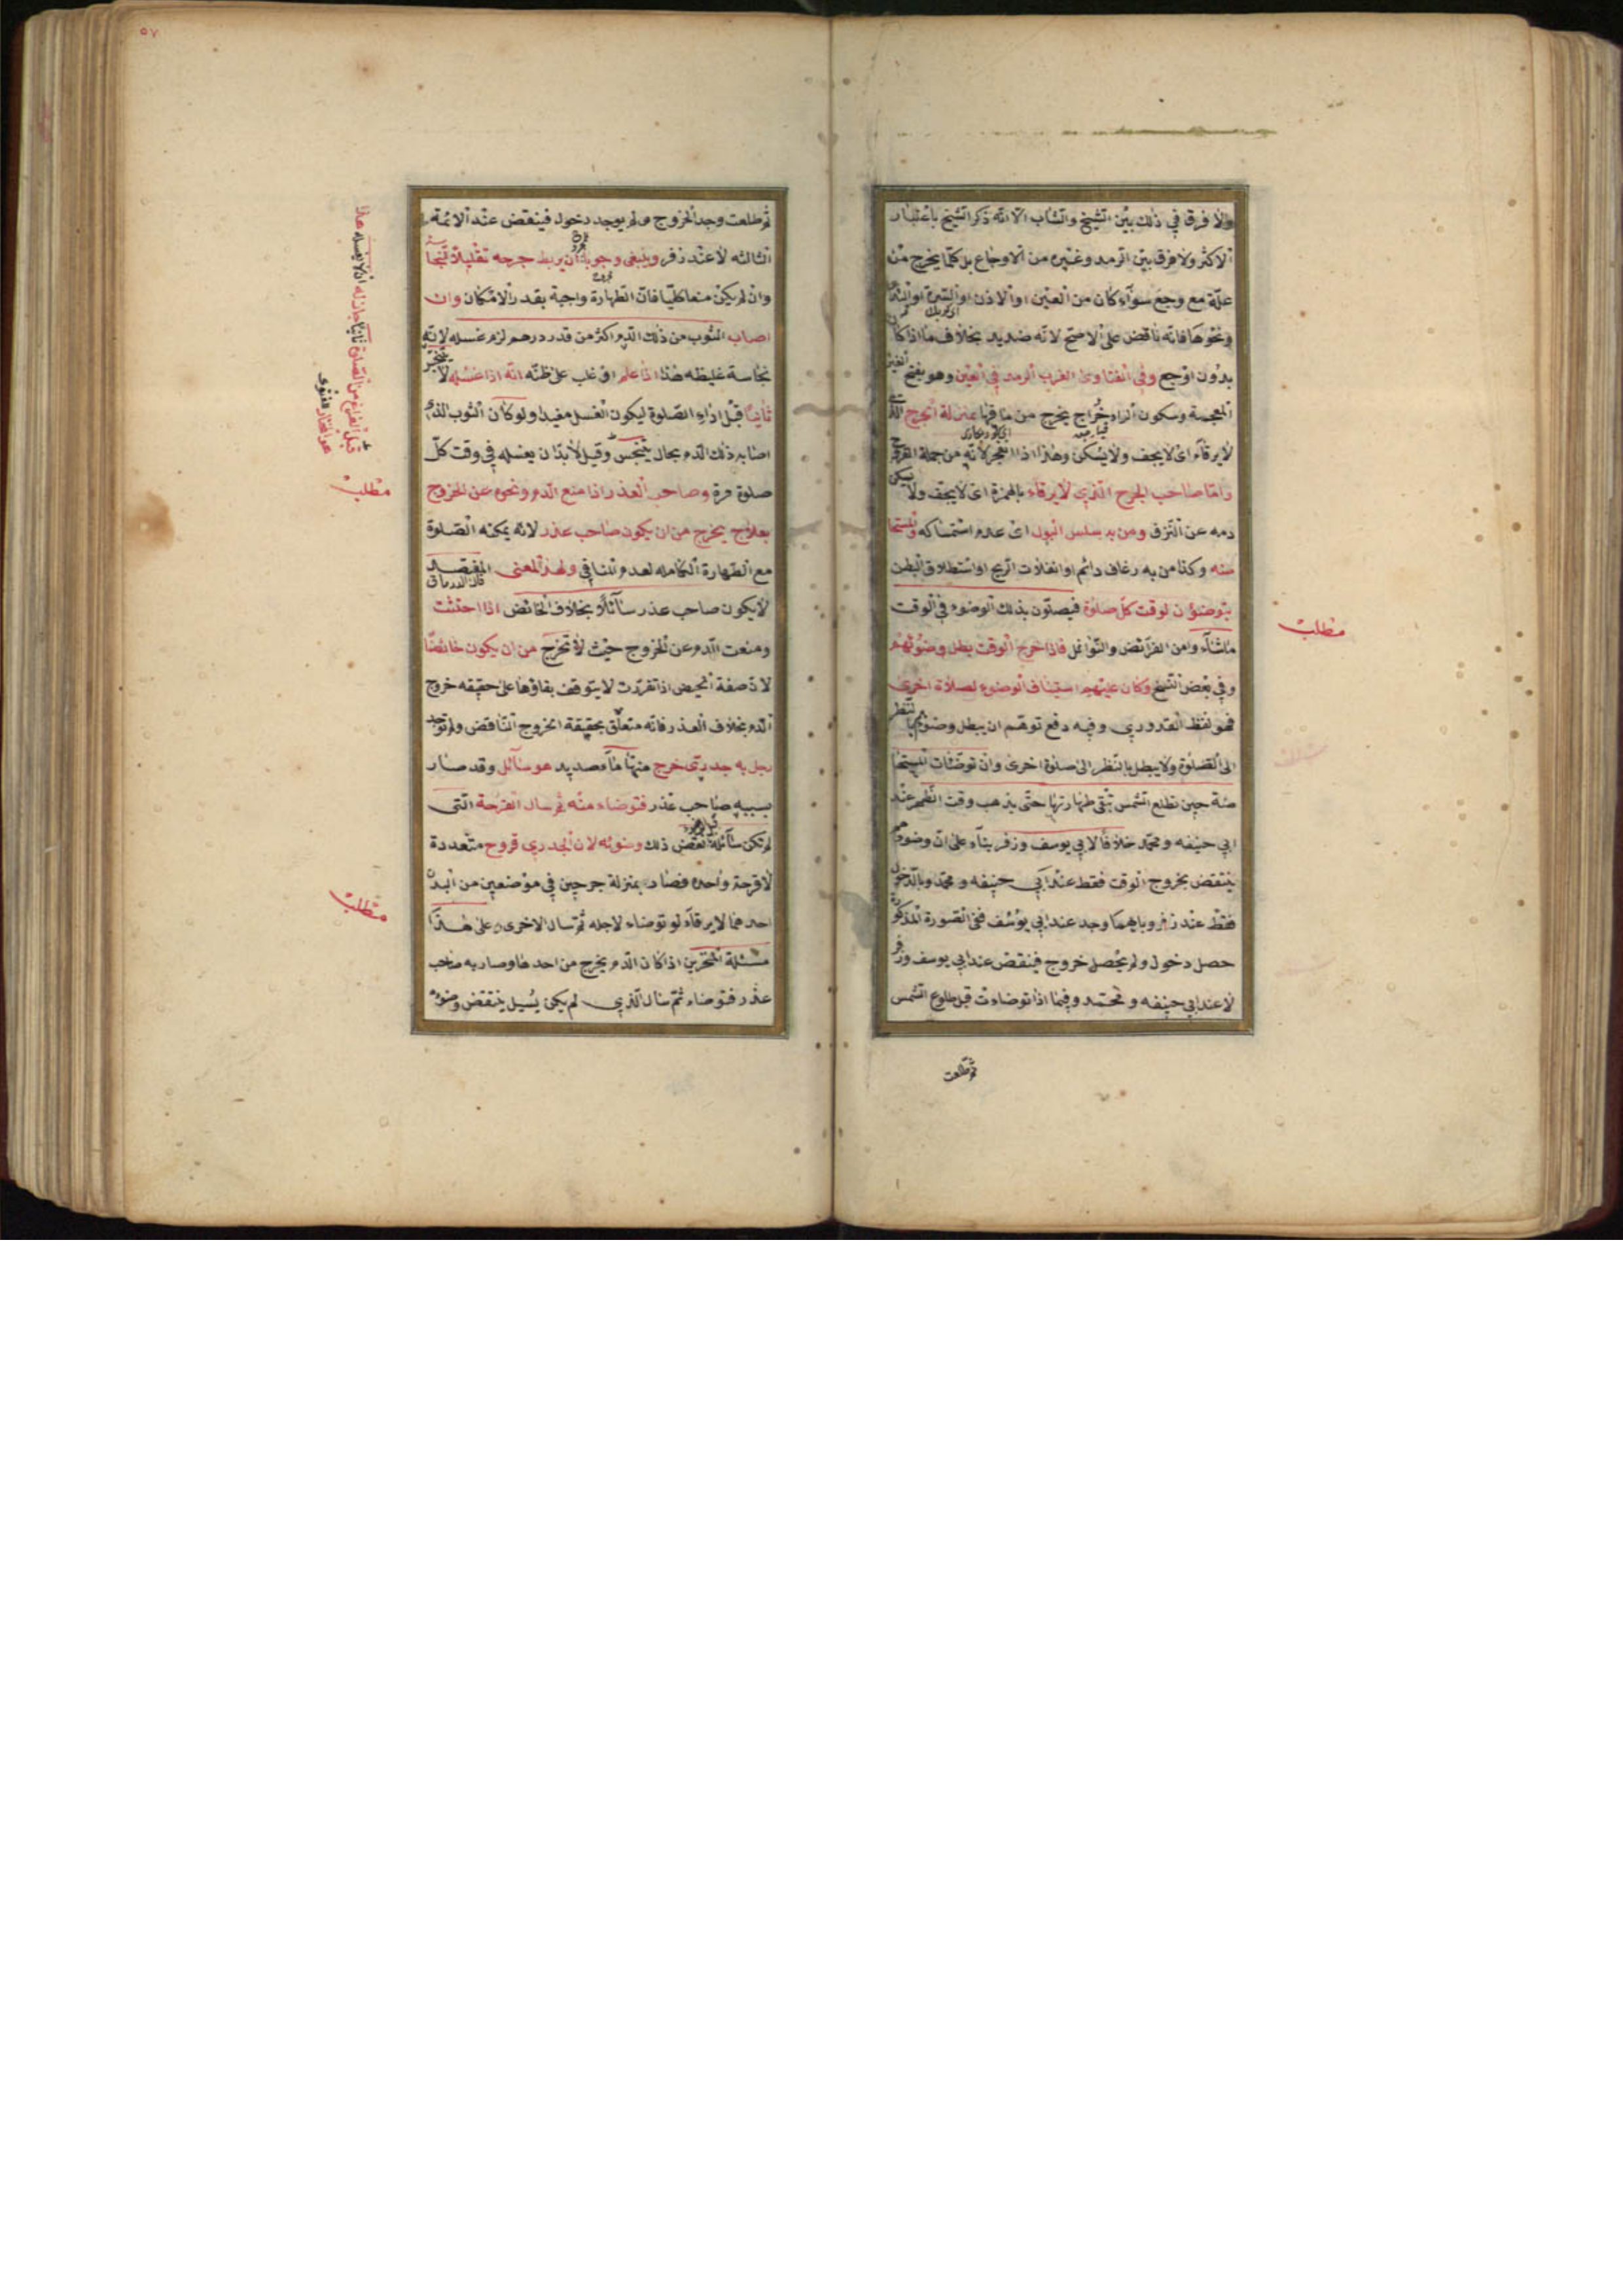 ولا فرق في ذلك بين الشيخ والشاب الا انه ذكر الشيخ باعتبار
الاكثر ولا فرق بين الرمد وغيره من الاوجاع بل كلما يخرج من
علة مع وجع سوآء كان من العين او الاذن او السرة او الثدي
ونحوها فانه ناقض على الاصح لانه صديد بخلاف ما اذا كان
بدون اوجع وفي الفتاوى الغرب الرمد في العين وهو بفتح الغين
المعجمة وسكون الراء خراج يخرج من ماقها بمنزلة الجرح الذي
لا يرقاء اى لا يجف ولا يسكن وهذا اذا انفجر لانه من جملة القروح
واما صاحب الجرح الذي لا يرقاء بالهمزة اى لا يجف ولا يسكن
دمه عن النزف ومن به سلس البول اى عدم استمساكه والمستحا
ضة وكذا من به رعاف دائم او انفلات الريح او استطلاق البطن
يتوضؤن لوقت كل صلوة فيصلون بذلك الوضوء في الوقت
ما شاء وامن الفرائض والنوافل فاذا خرج الوقت بطل وضوئهم
وفي بعض النسخ وكان عليهم استيناف الوضوء لصلاة اخرى
فهو لفظ القدوري وفيه دفع توهم ان يبطل وضوئهم بالنظر
الى الصلوة ولا يبطل بالنظر الى صلوة اخرى وان توضئات المستحا
ضة حين تطلع الشمس تبقى طهارتها حتى يذهب وقت الظهر عند
ابي حنيفه ومحمد خلافا لابي يوسف وزفر بناء على ان وضوئهم
ينتقض بخروج الوقت فقط عند ابي حنيفه ومحمد وبالدخول
فقط عند زفر وبايهما وجد عند ابي يوسف ففي الصورة المذكورة
حصل دخول ولم يحصل خروج فينقض عند ابي يوسف وزفر
لا عند ابي حنيفه ومحمد وفيما اذا توضاءت قبل طلوع الشمس
ثم طلعت
مطلب
٥٧
ثم طلعت وجد الخروج ولم يوجد دخول فينقض عند الائمة
الثالثه لا عند زفر وينبغى وجوبا ان يربط جرحه تقليلا للنجاسة
وان لم يكن منعا كليا فان الطهارة واجبة بقدر الامكان وان
اصاب الثوب من ذلك الدم اكثر من قدر درهم لزم غسله لانه
نجاسة غليظه هذا اذا علم او غلب على ظنه انه اذا غسله لا يتنجس
ثانيا قبل اداء الصلوة ليكون الغسل مفيدا ولو كان الثوب الذي
اصابه ذلك الدم بحال يتنجس وقيل لا بد ان يغسله في وقت كل
صلوة مرة وصاحب العذر اذا منع الدم ونحوه عن الخروج
بعلاج يخرج من ان يكون صاحب عذر لانه يمكنه الصلوة
مع الطهارة الكامله لعدم المنافي ولهذا المعنى المفتصد
لا يكون صاحب عذر سآئلا بخلاف الحائض اذا احتشت
ومنعت الدم عن الخروج حيث لا تخرج من ان يكون حائضا
لان صفة الحيض اذا تقررت لا يتوقف بقاؤها على حقيقه خروج
الدم بخلاف العذر فانه متعلق بحقيقة الخروج الناقض ولم توجد
رجل به جدرى خرج منها ماء صديد هو سآئل وقد صار
بسببه صاحب عذر فتوضاء منه ثم سال القرحة التى
لم تكن سآئلة نقض ذلك وضوئه لان الجدري قروح متعددة
لا قرحة واحدة فصار بمنزلة جرحين في موضعين من البدن
احدهما لا يرقاء لو توضاء لاجله ثم سال الاخرى وعلى هذا
مسئلة المنخرين اذا كان الدم يخرج من احدهما وصار به صاحب
عذر فتوضاء ثم سال الذي لم يكن يسيل ينتقض وضوئه
مطلب
مطلب